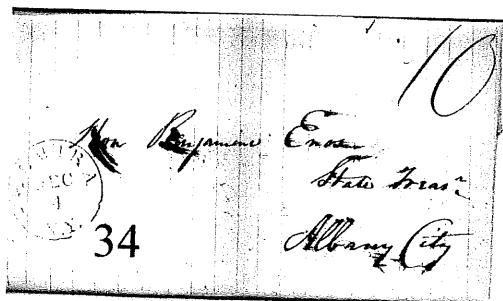 10
Hon Benjamin Enos
State Treasr
Albany City
DEC
N.Y.
34